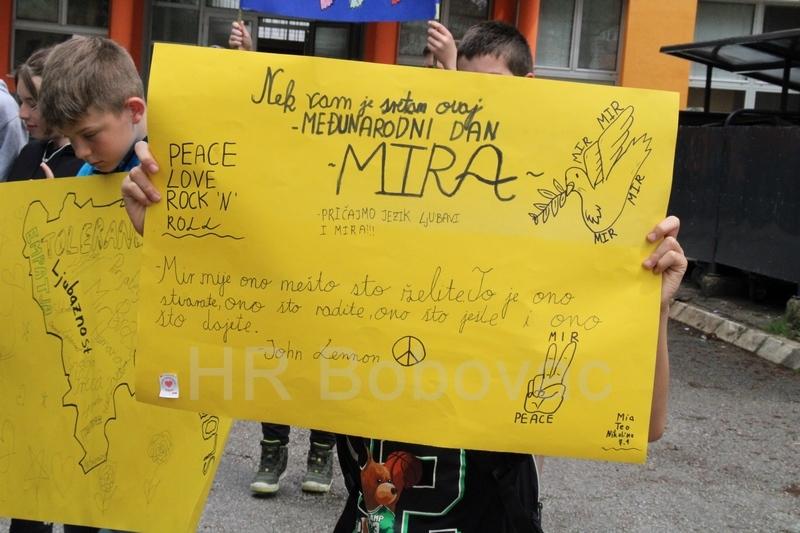 Nek vam je sretan ovaj
-MEĐUNARODNI DAN
-MIRA-
PEACE
LOVE
ROCK 'N'
ROLL
-PRIČAJMO JEZIK LJUBAVI
I MIRA!!!
MIR
MIR
MIR
MIR
-Mir nije ono mešto sto želite To je ono
stvarate, ono sto radite, ono što jeste i ono
što dajete.
John Lennon
MIR
PEACE
Mia
Teo
Nikolina
7.1
TOLERAN
EMPATIJA
Ljubaznost
HR Bobovac